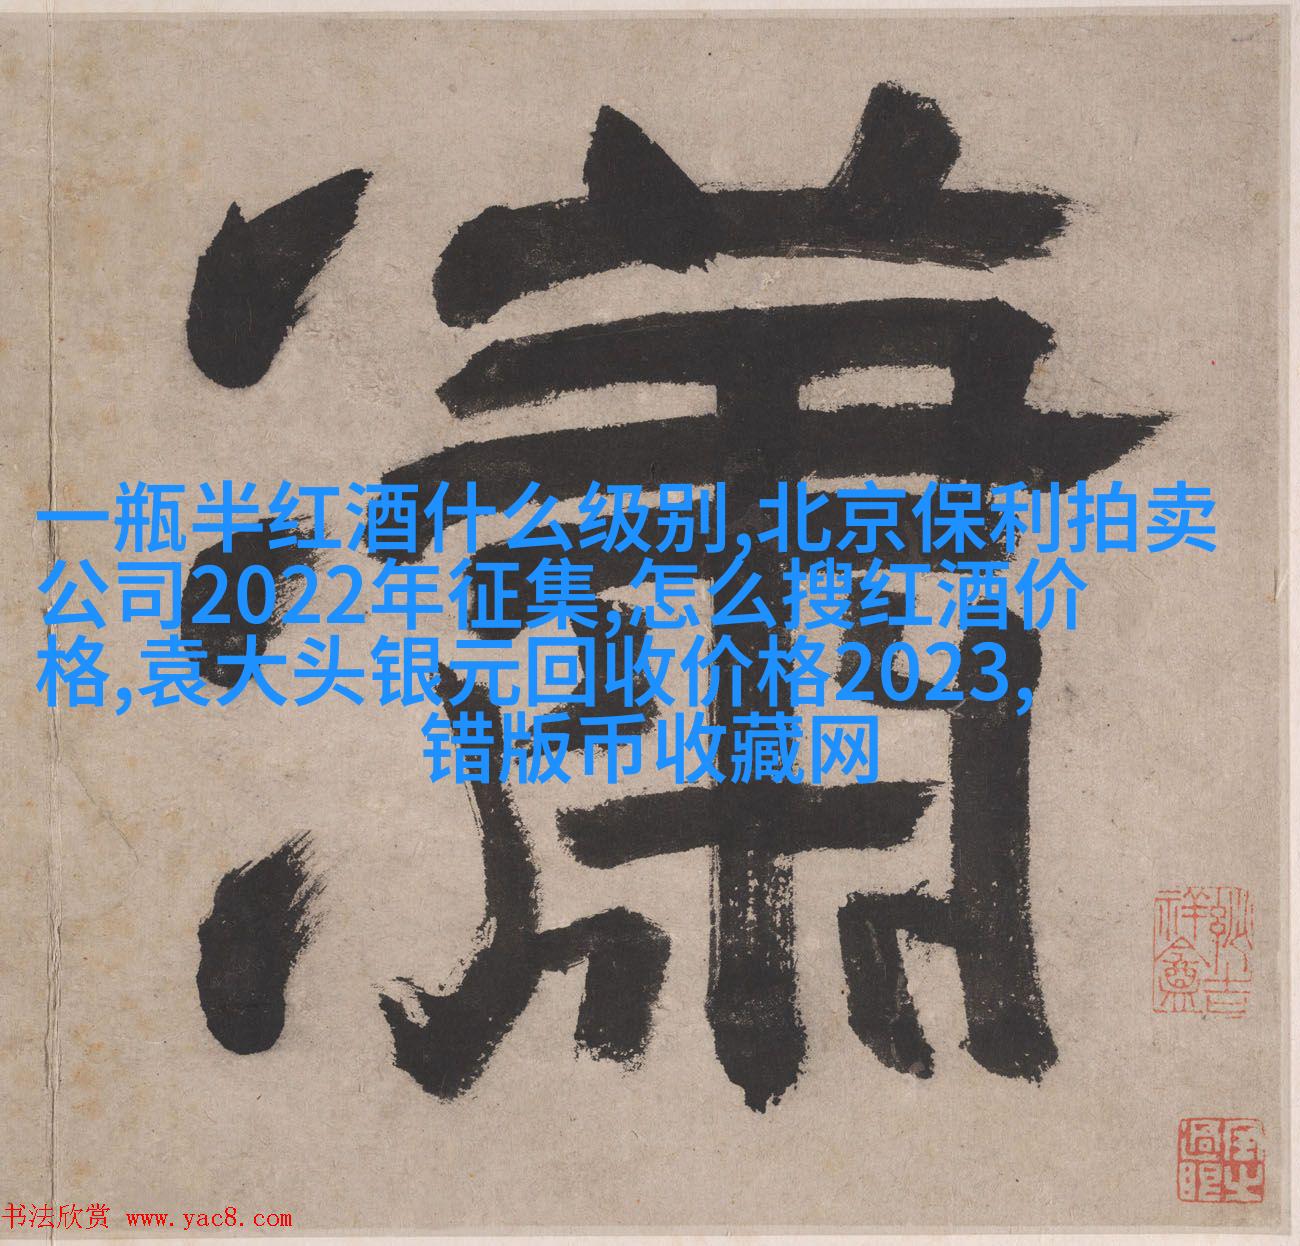 瀟
一瓶半红酒什么级别,北京保利拍卖
公司2022年征集,怎么搜红酒价
格,袁大头银元回收价格2023,
错版币收藏网
书法欣赏 www.yac8.com